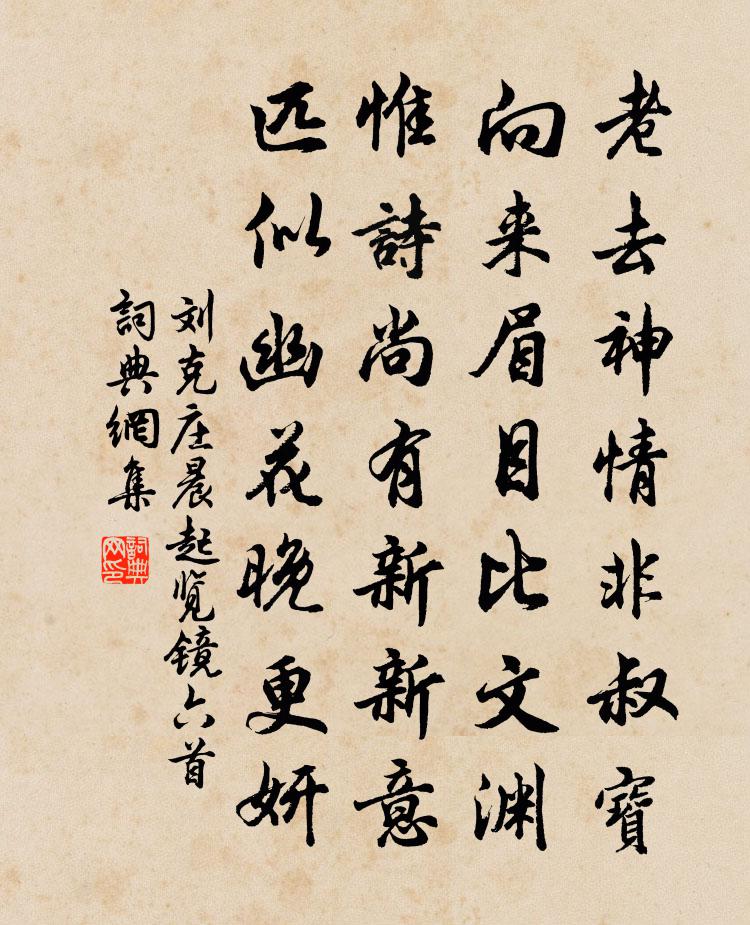 老去神情非叔寶
向来眉目比文渊
惟詩尚有新新意
匹似幽花晚更妍
刘克庄晨起览镜六首
詞典網集
詞典网印